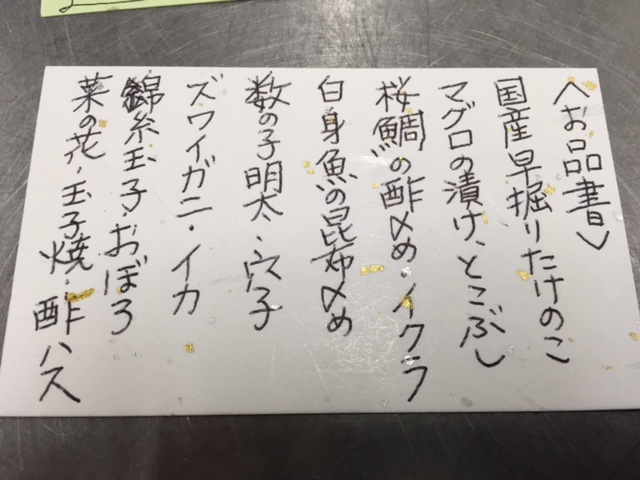 〈お品書〉
国産早掘りたけのこ
マグロの漬け、とこぶし
桜鯛の酢〆め・イクラ
白身魚の昆布〆め
数の子明太・穴子
ズワイガニ・イカ
錦糸玉子・おぼろ
菜の花・玉子焼・酢ハス